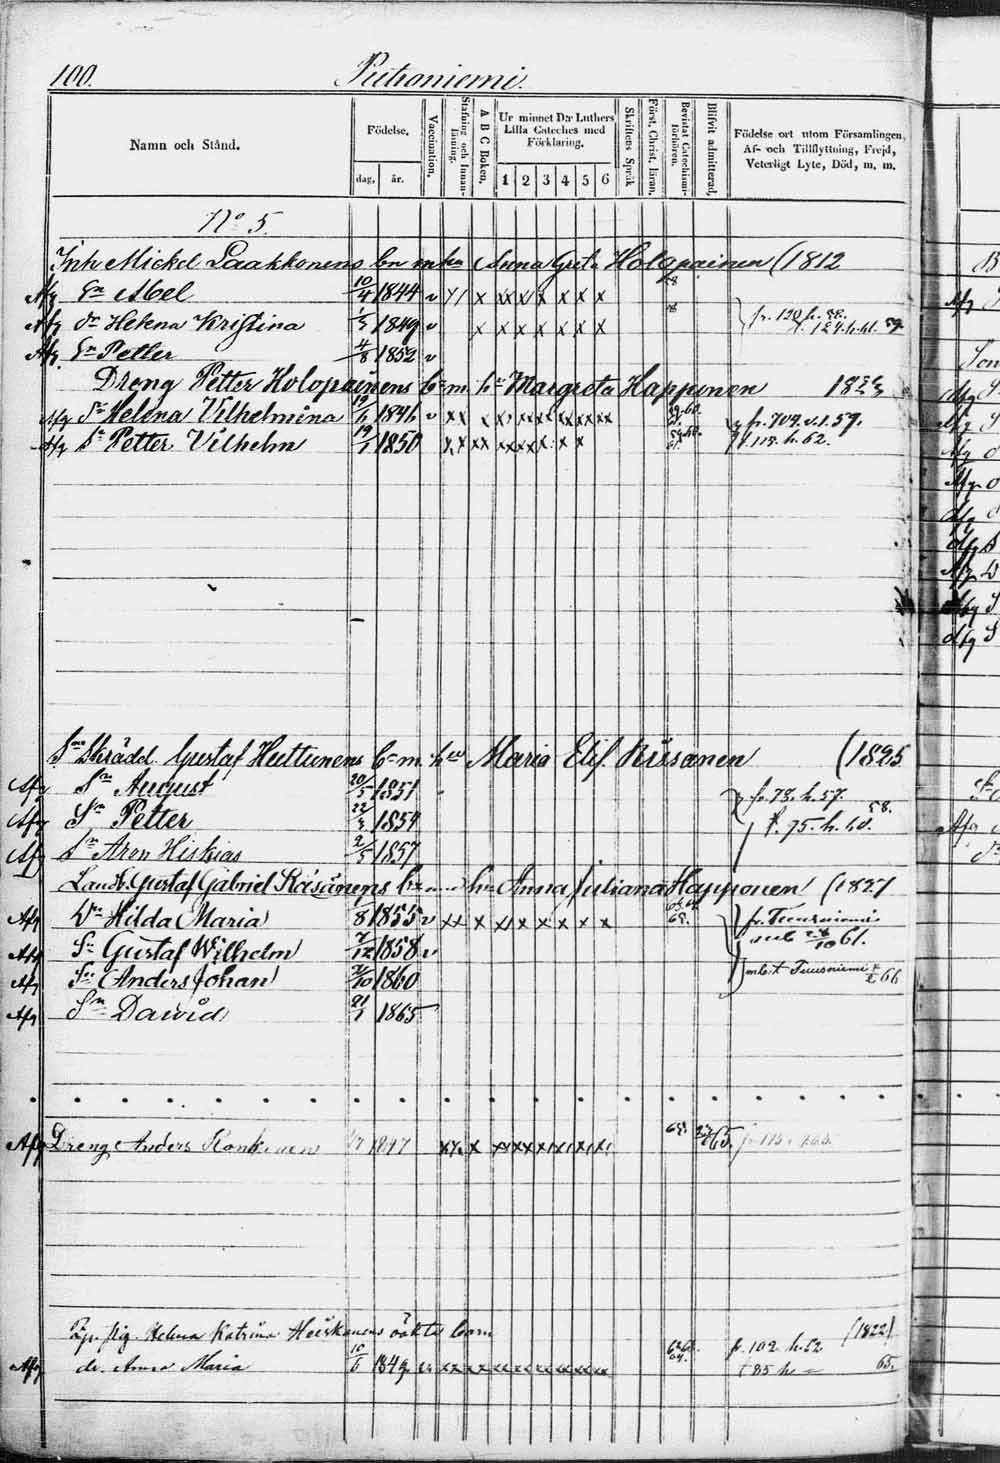 100. Putroniemi.
Namn och Stånd.
Födelse.
dag. år.
Vaccination.
Stafning och Innan-läsning.
A B C Boken.
Ur minnet D:r Luthers Lilla Cateches med Förklaring.
1 2 3 4 5 6
Skriftens Språk
Först. Christ. läran.
Bevistat Catechismi-förhören.
Blifvit admitterad.
Födelse ort utom Församlingen, Af- och Tillflyttning, Frejd, Veterligt Lyte, Död, m. m.
No 5.
Inh Mickel Laakkonens bn m hu Anna Greta Holopainen (1812
Afg Sn Abel 10/4 1844 v x x x x x x x
Afg dr Helena Kristina 1849 v x x x x x x x fr. 120 h. 58.
Afg Sn Petter 4/8 1852 v
Dreng Petter Holopainens bn m. hu Margreta Happonen
Afg Dr Helena Vilhelmina 1846 v x x x x x x x x fr. 709. v. 1. 59.
Afg Sn Petter Vilhelm 19/1 1850 x x x x x x x x t. 118. h. 62.
Sn Skrädd. Gustaf Huttunens bn m. hu Maria Elis. Rissanen (1825
Afg Sn August 20/5 1851 fr. 78. h. 57.
Afg Sn Petter 1854 t. 75. h. 60.
Afg Sn Aron Hiskias 2/5 1857
Landb. Gustaf Gabriel Räsänens bn m hu Anna Juliana Happonen (1827
Afg Dr Hilda Maria /8 1855 v x x x x x x x x fr. Tuusniemi
Afg Sn Gustaf Wilhelm 7/12 1858 v 28/10 61.
Afg Sn Anders Johan 2/10 1860 t Tuusniemi 66
Afg Sn Dawid 21/1 1865
Afg Dreng Anders 1847 x x x x x x x x 65. 65.
Helena Katrina Heiskanens oäkta barn (1822)
Afg dr. Anna Maria 10/6 1849 x x x x x x x x fr. 102 h. 62
t 85 h 65.